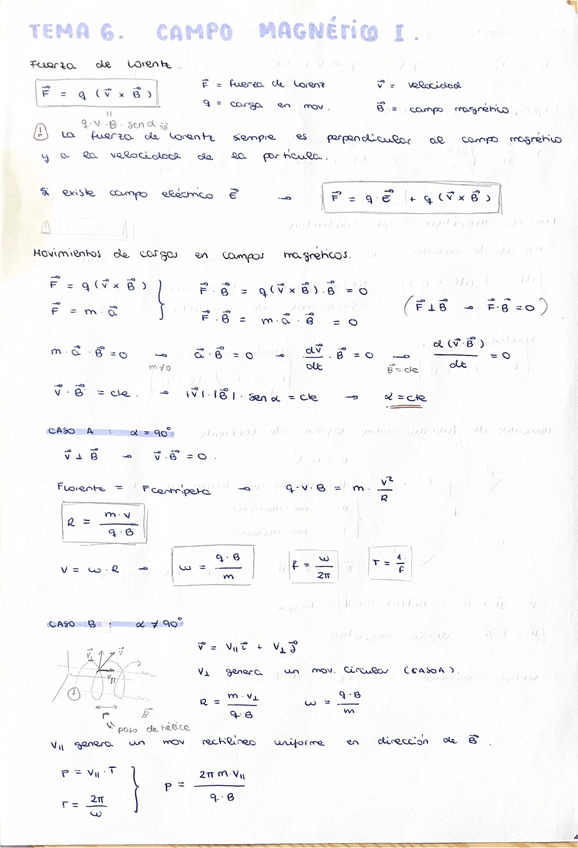 TEMA 6. CAMPO MAGNÉTICO I.
Fuerza de Lorentz.
F⃗ = q (v⃗ × B⃗)
F⃗ = fuerza de Lorenz v⃗ = velocidad
q = carga en mov. B⃗ = campo magnético
q·v·B·sen α
La fuerza de Lorentz siempre es perpendicular al campo magnético
y a la velocidad de la partícula.
Si existe campo eléctrico E⃗ → F⃗ = q·E⃗ + q (v⃗ × B⃗)
Movimientos de cargas en campos magnéticos.
F⃗ = q (v⃗ × B⃗) } F⃗·B⃗ = q (v⃗ × B⃗)·B⃗ = 0 (F⃗ ⊥ B⃗ → F⃗·B⃗ = 0)
F⃗ = m·a⃗ F⃗·B⃗ = m·a⃗·B⃗ = 0
m·a⃗·B⃗ = 0 → m≠0 a⃗·B⃗ = 0 → dv⃗/dt · B⃗ = 0 → B⃗=cte d(v⃗·B⃗)/dt = 0
v⃗·B⃗ = cte. → |v⃗|·|B⃗|·sen α = cte → α = cte
CASO A: α = 90°
v⃗ ⊥ B⃗ → v⃗·B⃗ = 0.
F lorentz = F centrípeta → q·v·B = m·v²/R
R = m·v/q·B
v = ω·R → ω = q·B/m f = ω/2π T = 1/f
CASO B: α ≠ 90°
v⃗ = v∥ i⃗ + v⊥ j⃗
v⊥ v⃗ v∥
v⊥ genera un mov. circular (CASO A).
R = m·v⊥/q·B ω = q·B/m
B⃗
paso de hélice
v∥ genera un mov rectilíneo uniforme en dirección de B⃗.
P = v∥·T } P = 2π m·v∥/q·B
T = 2π/ω